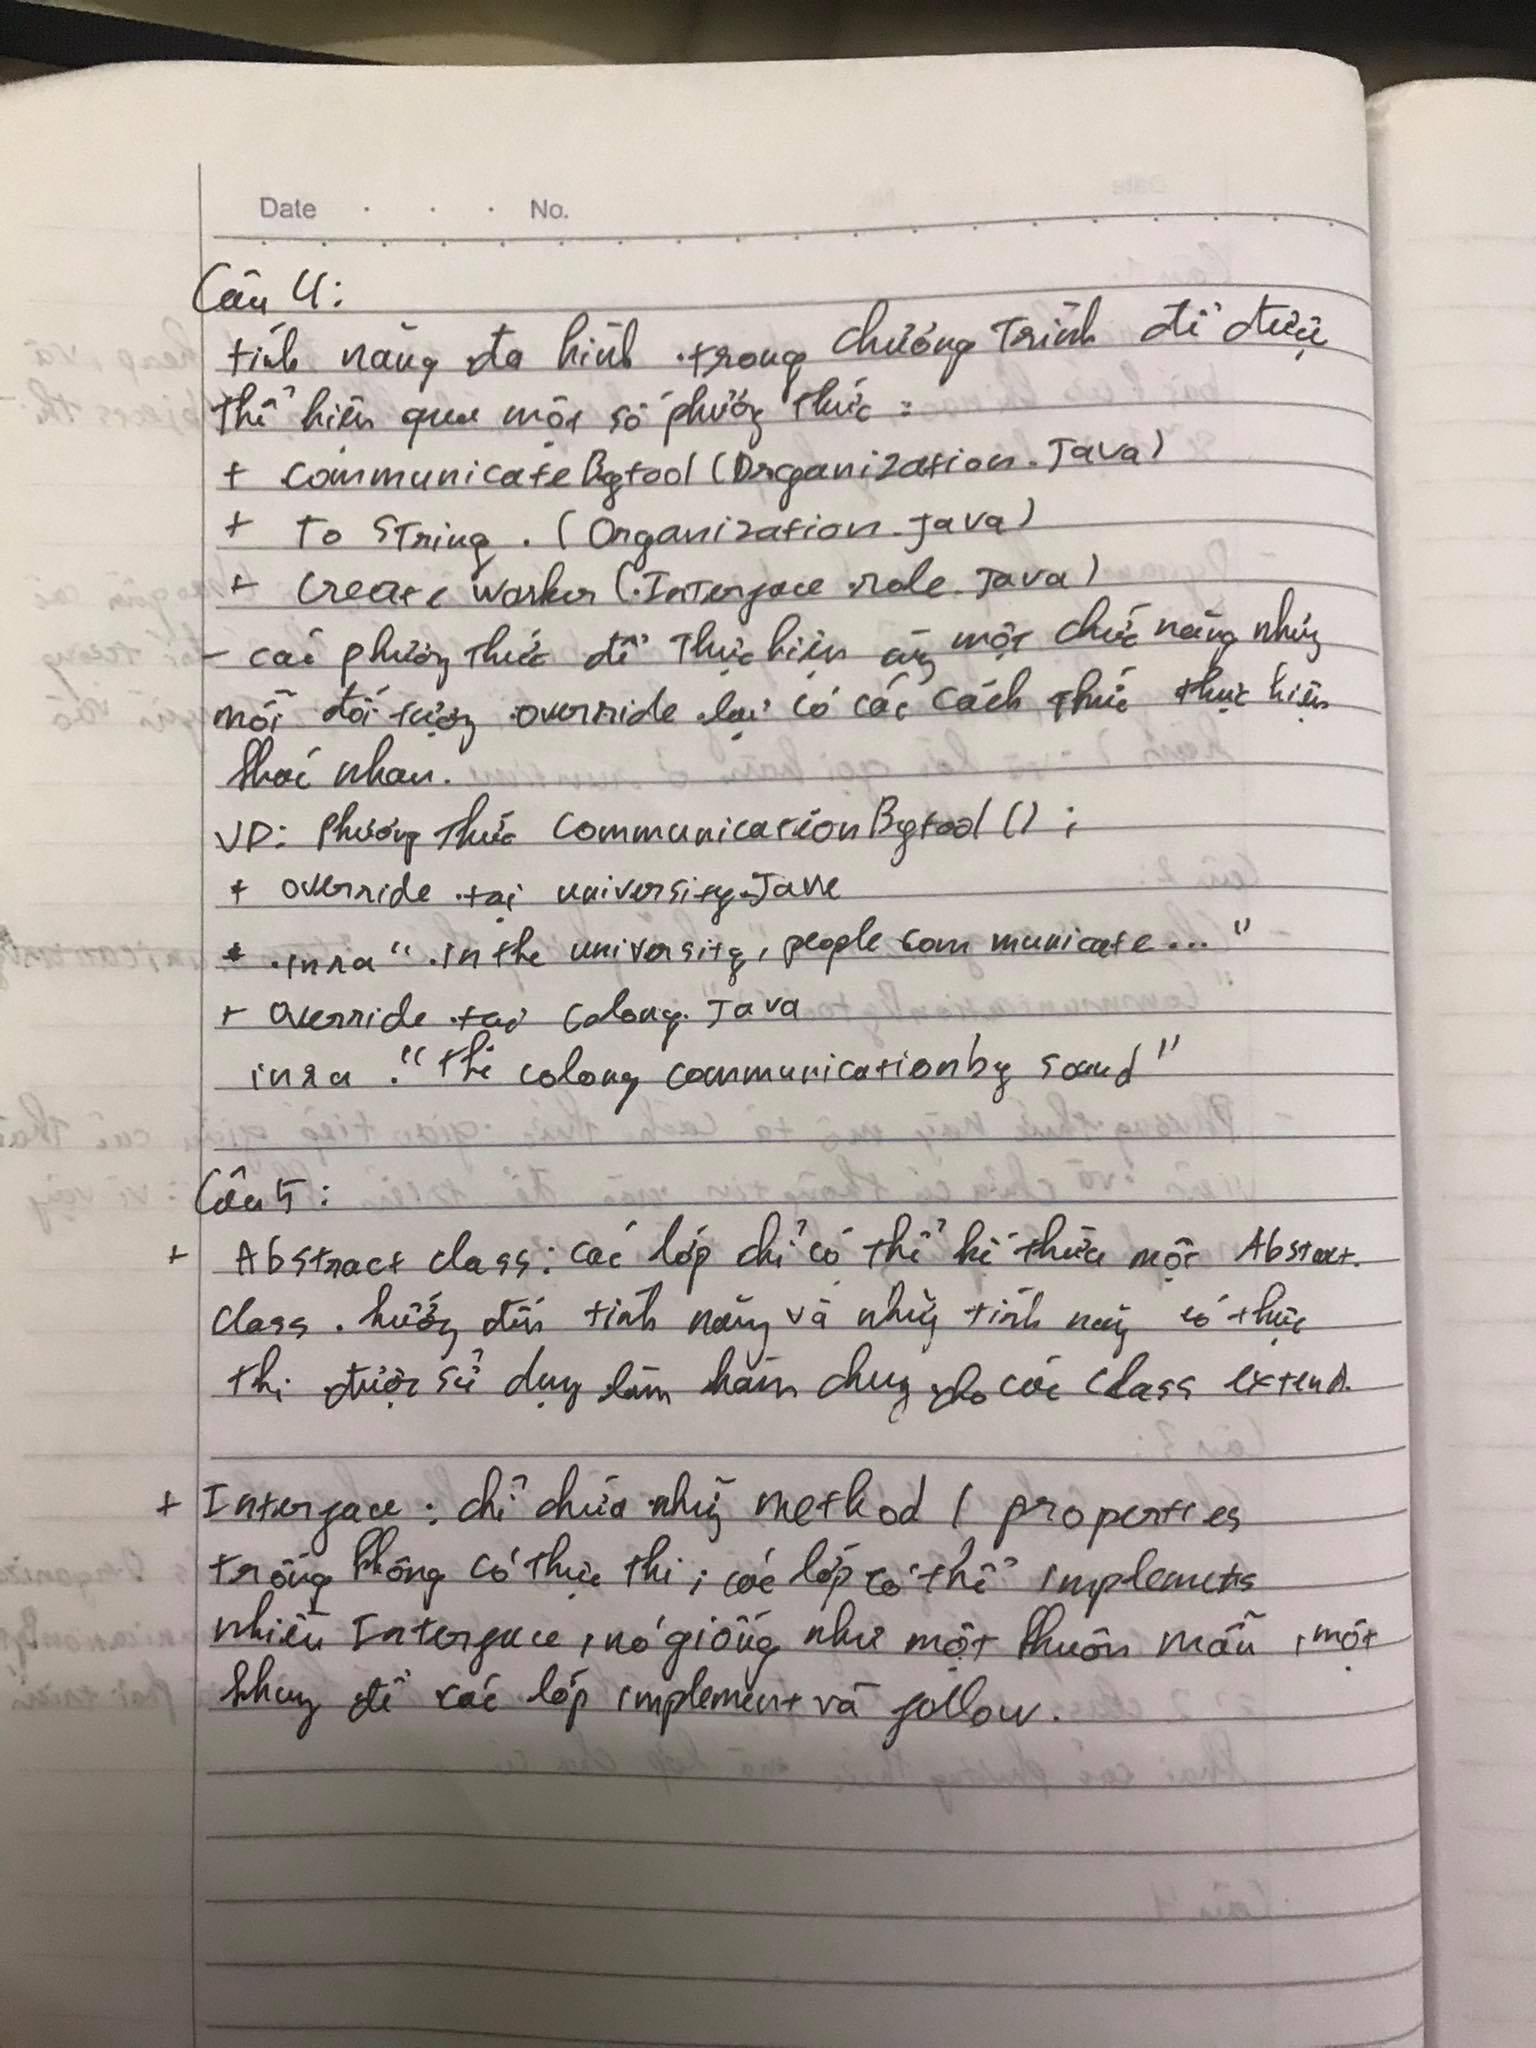 Date . . . No.
Câu 4:
tính năng đa hình trong chương trình để được
thể hiện qua một số phương thức:
+ communicateBytool (Organization.Java)
+ To String. (Organization.Java)
+ Create Worker (Interface role.Java)
- các phương thức để thực hiện cùng một chức năng nhưng
mỗi đối tượng override lại có các cách thức thực hiện
khác nhau.
VD: phương thức communicationBytool();
+ override tại university.Java
+ in ra "in the university, people communicate..."
+ override tại colony.Java
in ra "the colony communication by sound"
Câu 5:
+ Abstract class: các lớp chỉ có thể kế thừa một Abstract
class. hướng đến tính năng và những tính năng có thực
thi được sử dụng làm hàm chung cho các class extend.
+ Interface: chỉ chứa những method / properties
trống không có thực thi; các lớp có thể implements
nhiều Interface, nó giống như một khuôn mẫu, một
khung để các lớp implement và follow.